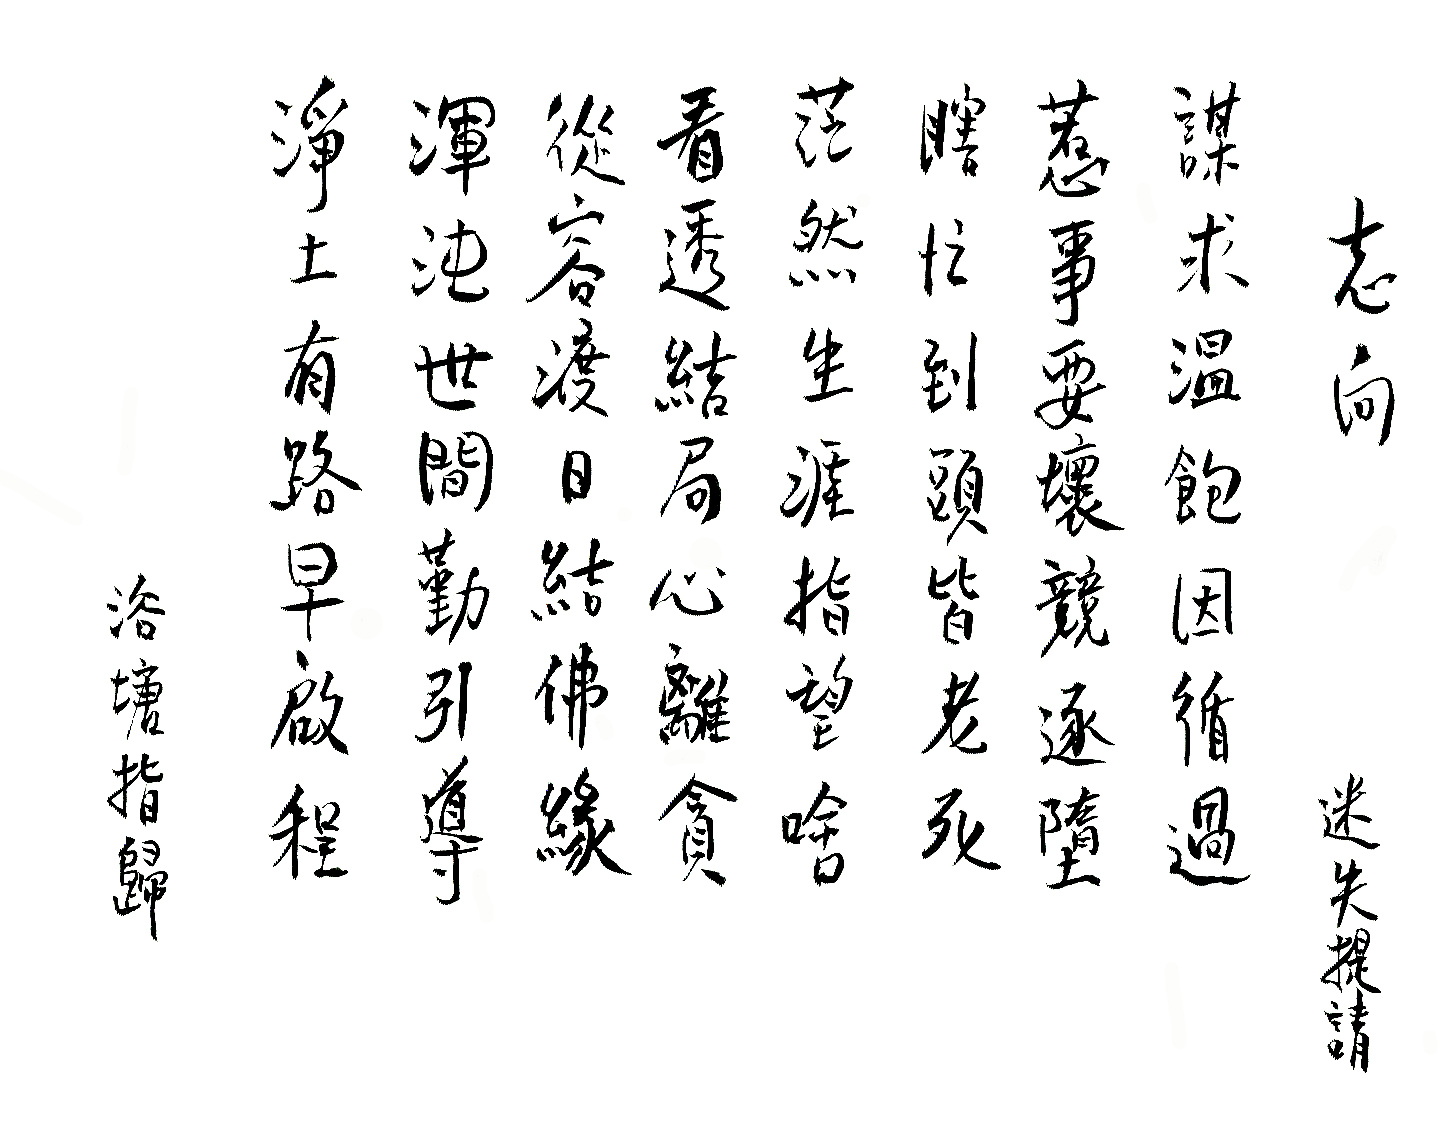 志向
迷失提請
謀求溫飽因循過
惹事要壞競逐墮
瞎忙到頭皆老死
茫然生涯指望啥
看透結局心離貪
從容渡日結佛緣
渾沌世間勤引導
淨土有路早啟程
浴塘指歸